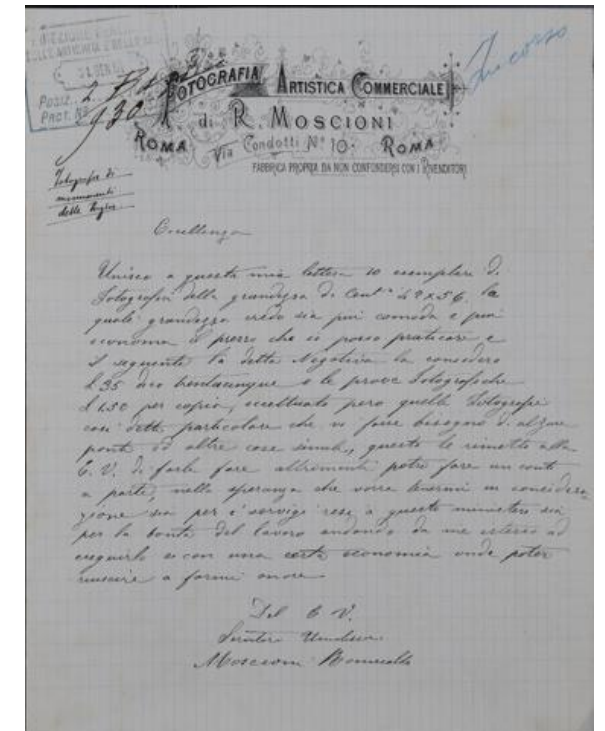 DIREZIONE
DELLE ANTICHITÀ E BELLE ARTI
Posiz. 2
Prot. Nº 930
In corso
FOTOGRAFIA ARTISTICA COMMERCIALE
di R. MOSCIONI
ROMA Via Condotti Nº 10 ROMA
FABBRICA PROPRIA DA NON CONFONDERSI CON I RIVENDITORI
Fotografie di
monumenti
delle Puglie
Eccellenza
Unisco a questa mia lettera 10 esemplari di
Fotografie della grandezza di Cent. 47x56. la
quale grandezza credo sia più comoda e più
economia il prezzo che io posso praticare e
il seguente la detta Negativa la considero
£ 35 dico trentacinque e le prove Fotografiche
£ 1.50 per copia, eccettuato però quelle Fotografie
così dette particolare che vi fosse bisogno d'alzare
ponti od altre cose simili, queste le rimetto alla
E. V. di farle fare altrimenti potrò fare un conto
a parte, nella speranza che vorrà tenermi in considera
zione sia per i servigi resi a questo ministero sia
per la bontà del lavoro andando da me stesso ad
eseguirlo e con una certa economia onde poter
riuscire a farmi onore
Del E V.
Servitore Umilissimo
Moscioni Romualdo